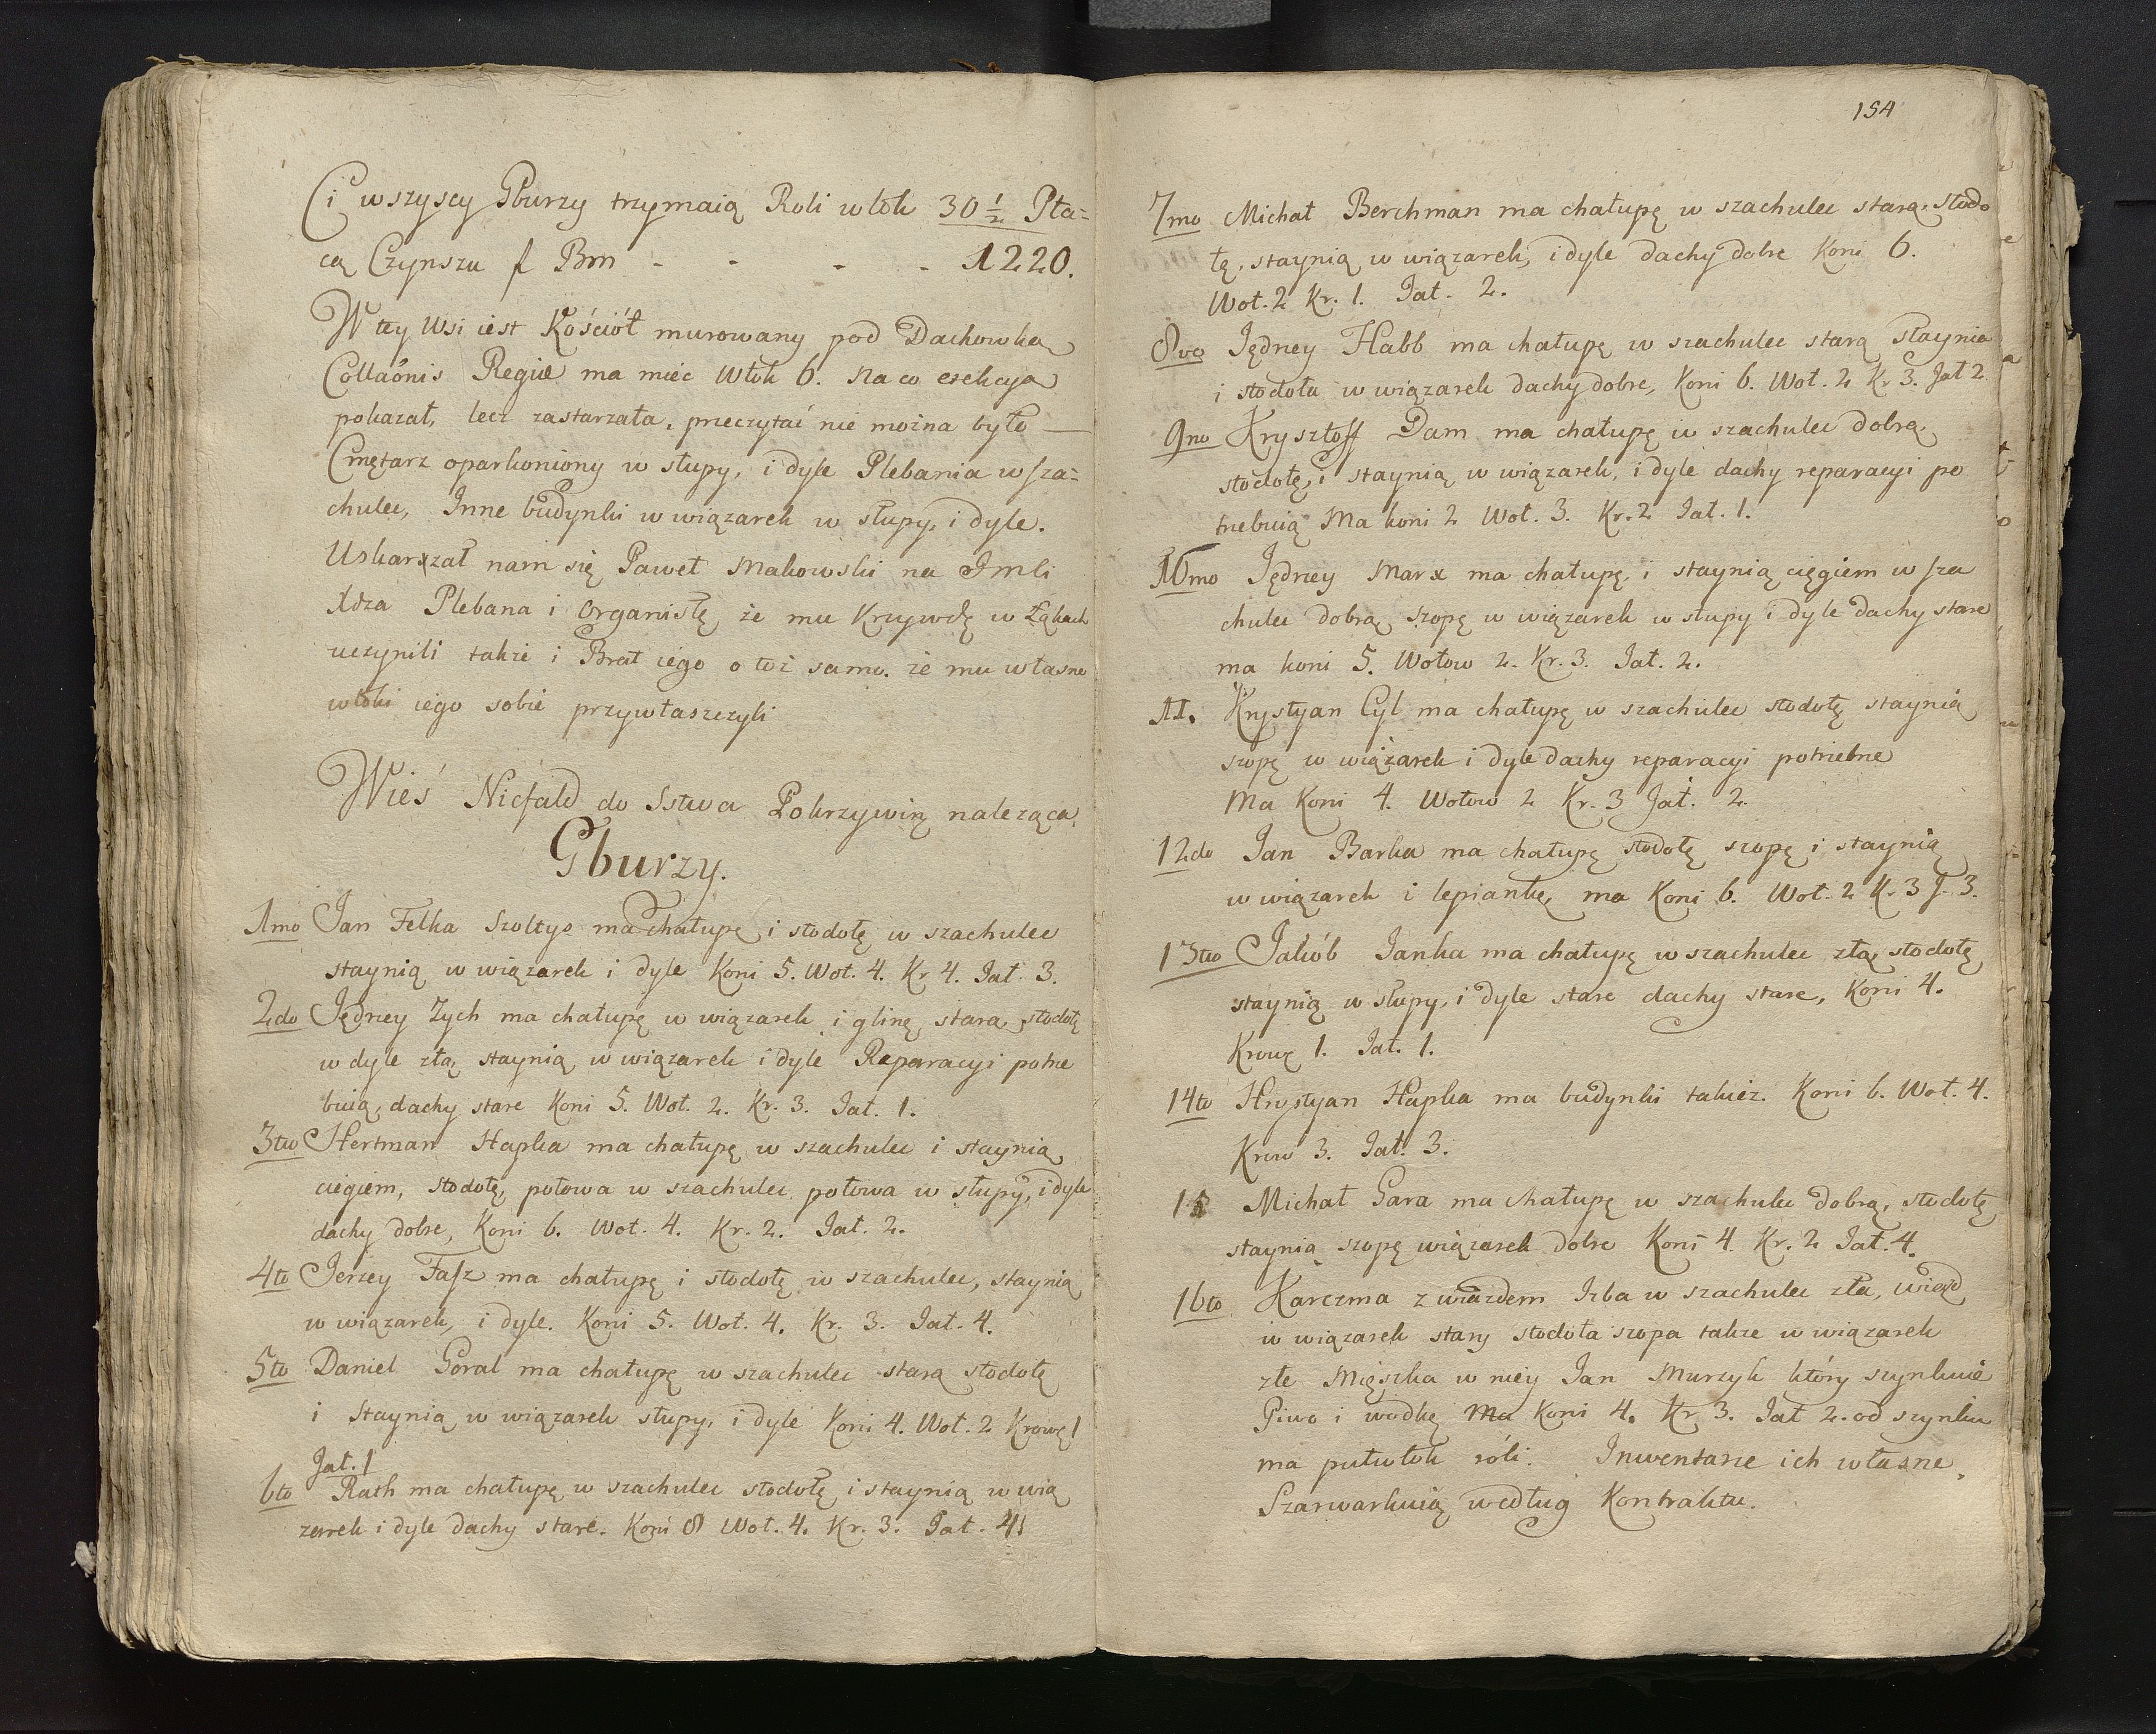 Ci wszyscy Gburzy trzymaią Roli włok 30 1/2 Pła=
cą Czynszu f Bm - - - - 1220.
W tey Wsi iest Kościół murowany pod Dachowką
Collaónis Regiæ ma miec włok 6. na co erekcyą
pokazał, lecz zastarzała, przeczytać nie można było —
Cmętarz oparkoniony w słupy, i dyle Plebania w sza=
chulec, Inne budynki w wiązarek w słupy, i dyle.
Uskarzał nam się Paweł Makowski na Jmci
Xdza Plebana i Organistę że mu Krzywdę w Łąkach
uczynili także i Brat iego o toż samo. że mu własne
włoki iego sobie przywłaszczyli
Wieś Nicfałd do Sstwa Pokrzywin należąca
Gburzy.
1mo Jan Felka Szoltys ma chałupę i stodołę w szachulec
staynią w wiązarek i dyle Koni 5. Woł. 4. Kr 4. Jał. 3.
2do Jędrzey Zych ma chałupę w wiązarek i glinę starą, stodołę
w dyle złą, staynią w wiązarek i dyle Reparacyi potrze
buią, dachy stare Koni 5. Woł. 2. Kr. 3. Jał. 1.
3tio Hertman Hapka ma chałupę w szachulec i staynią
ciegiem, stodołę, połowa w szachulec połowa w słupy, i dyle
dachy dobre, Koni 6. Woł. 4. Kr. 2. Jał. 2.
4to Jerzey Fasz ma chałupę i stodołę w szachulec, staynią
w wiązarek, i dyle. Koni 5. Woł. 4. Kr. 3. Jał. 4.
5to Daniel Goral ma chałupę w szachulec starą stodołę
i staynią w wiązarek słupy, i dyle Koni 4. Woł. 2 Krowę 1
Jał. 1
6to Rath ma chałupę w szachulec stodołę i staynią w wią
zarek i dyle dachy stare. Koni 8 Woł. 4. Kr. 3. Jał. 4
154
7mo Michał Berchman ma chałupę w szachulec starą, stodo
łę, staynią w wiązarek, i dyle dachy dobre Koni 6.
Woł. 2 Kr. 1. Jał. 2.
8vo Jędrzey Habb ma chałupę w szachulec starą staynia
i stodoła w wiązarek dachy dobre, Koni 6. Woł. 2 Kr 3. Jał 2.
9no Krysztoff Dam ma chałupę w szachulec dobrą
stodołę, i staynią w wiązarek, i dyle dachy reparacyi po
trzebuią Ma koni 2 Woł. 3. Kr. 2 Jał. 1.
10mo Jędrzey Marx ma chałupę, i staynią cięgiem w sza
chulec dobrą szopę w wiązarek w słupy i dyle dachy stare
ma koni 5. Wołow 2. Kr. 3. Jał. 2.
11. Krystyan Cyl ma chałupę w szachulec stodołę staynią
szopę w wiązarek i dyle dachy reparacyi potrzebne
Ma Koni 4. Wołow 2 Kr. 3 Jał. 2.
12do Jan Barka ma chałupę stodołę szopę i staynią
w wiązarek i lepiankę, ma Koni 6. Woł. 2 K. 3 J. 3.
13tio Jakób Janka ma chałupę w szachulec złą, stodołę
staynią w słupy, i dyle stare dachy stare, Koni 4.
Krowę 1. Jał. 1.
14to Krystyan Hapka ma budynki takież. Koni 6. Woł. 4.
Krow 3. Jał. 3.
15 Michał Gara ma chałupę w szachulec dobrą, stodołę
staynią szopę wiązarek dobre Koni 4. Kr. 2 Jał. 4.
16to Karczma z wiazdem Izba w szachulec zła, wiazd
w wiązarek stary stodoła szopa także w wiązarek
złe Mięszka w niey Jan Murzyk który szynkuie
Piwo i wodkę Ma Koni 4. Kr 3. Jał 2. od szynku
ma putwłok róli. Inwentarze ich własne,
Szarwarkuią według Kontraktu.